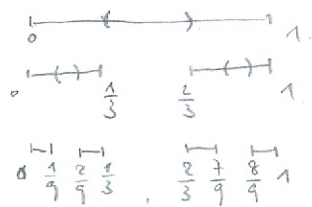 0 1.
0 1/3 2/3 1
0 1/9 2/9 1/3 , 2/3 7/9 8/9 1